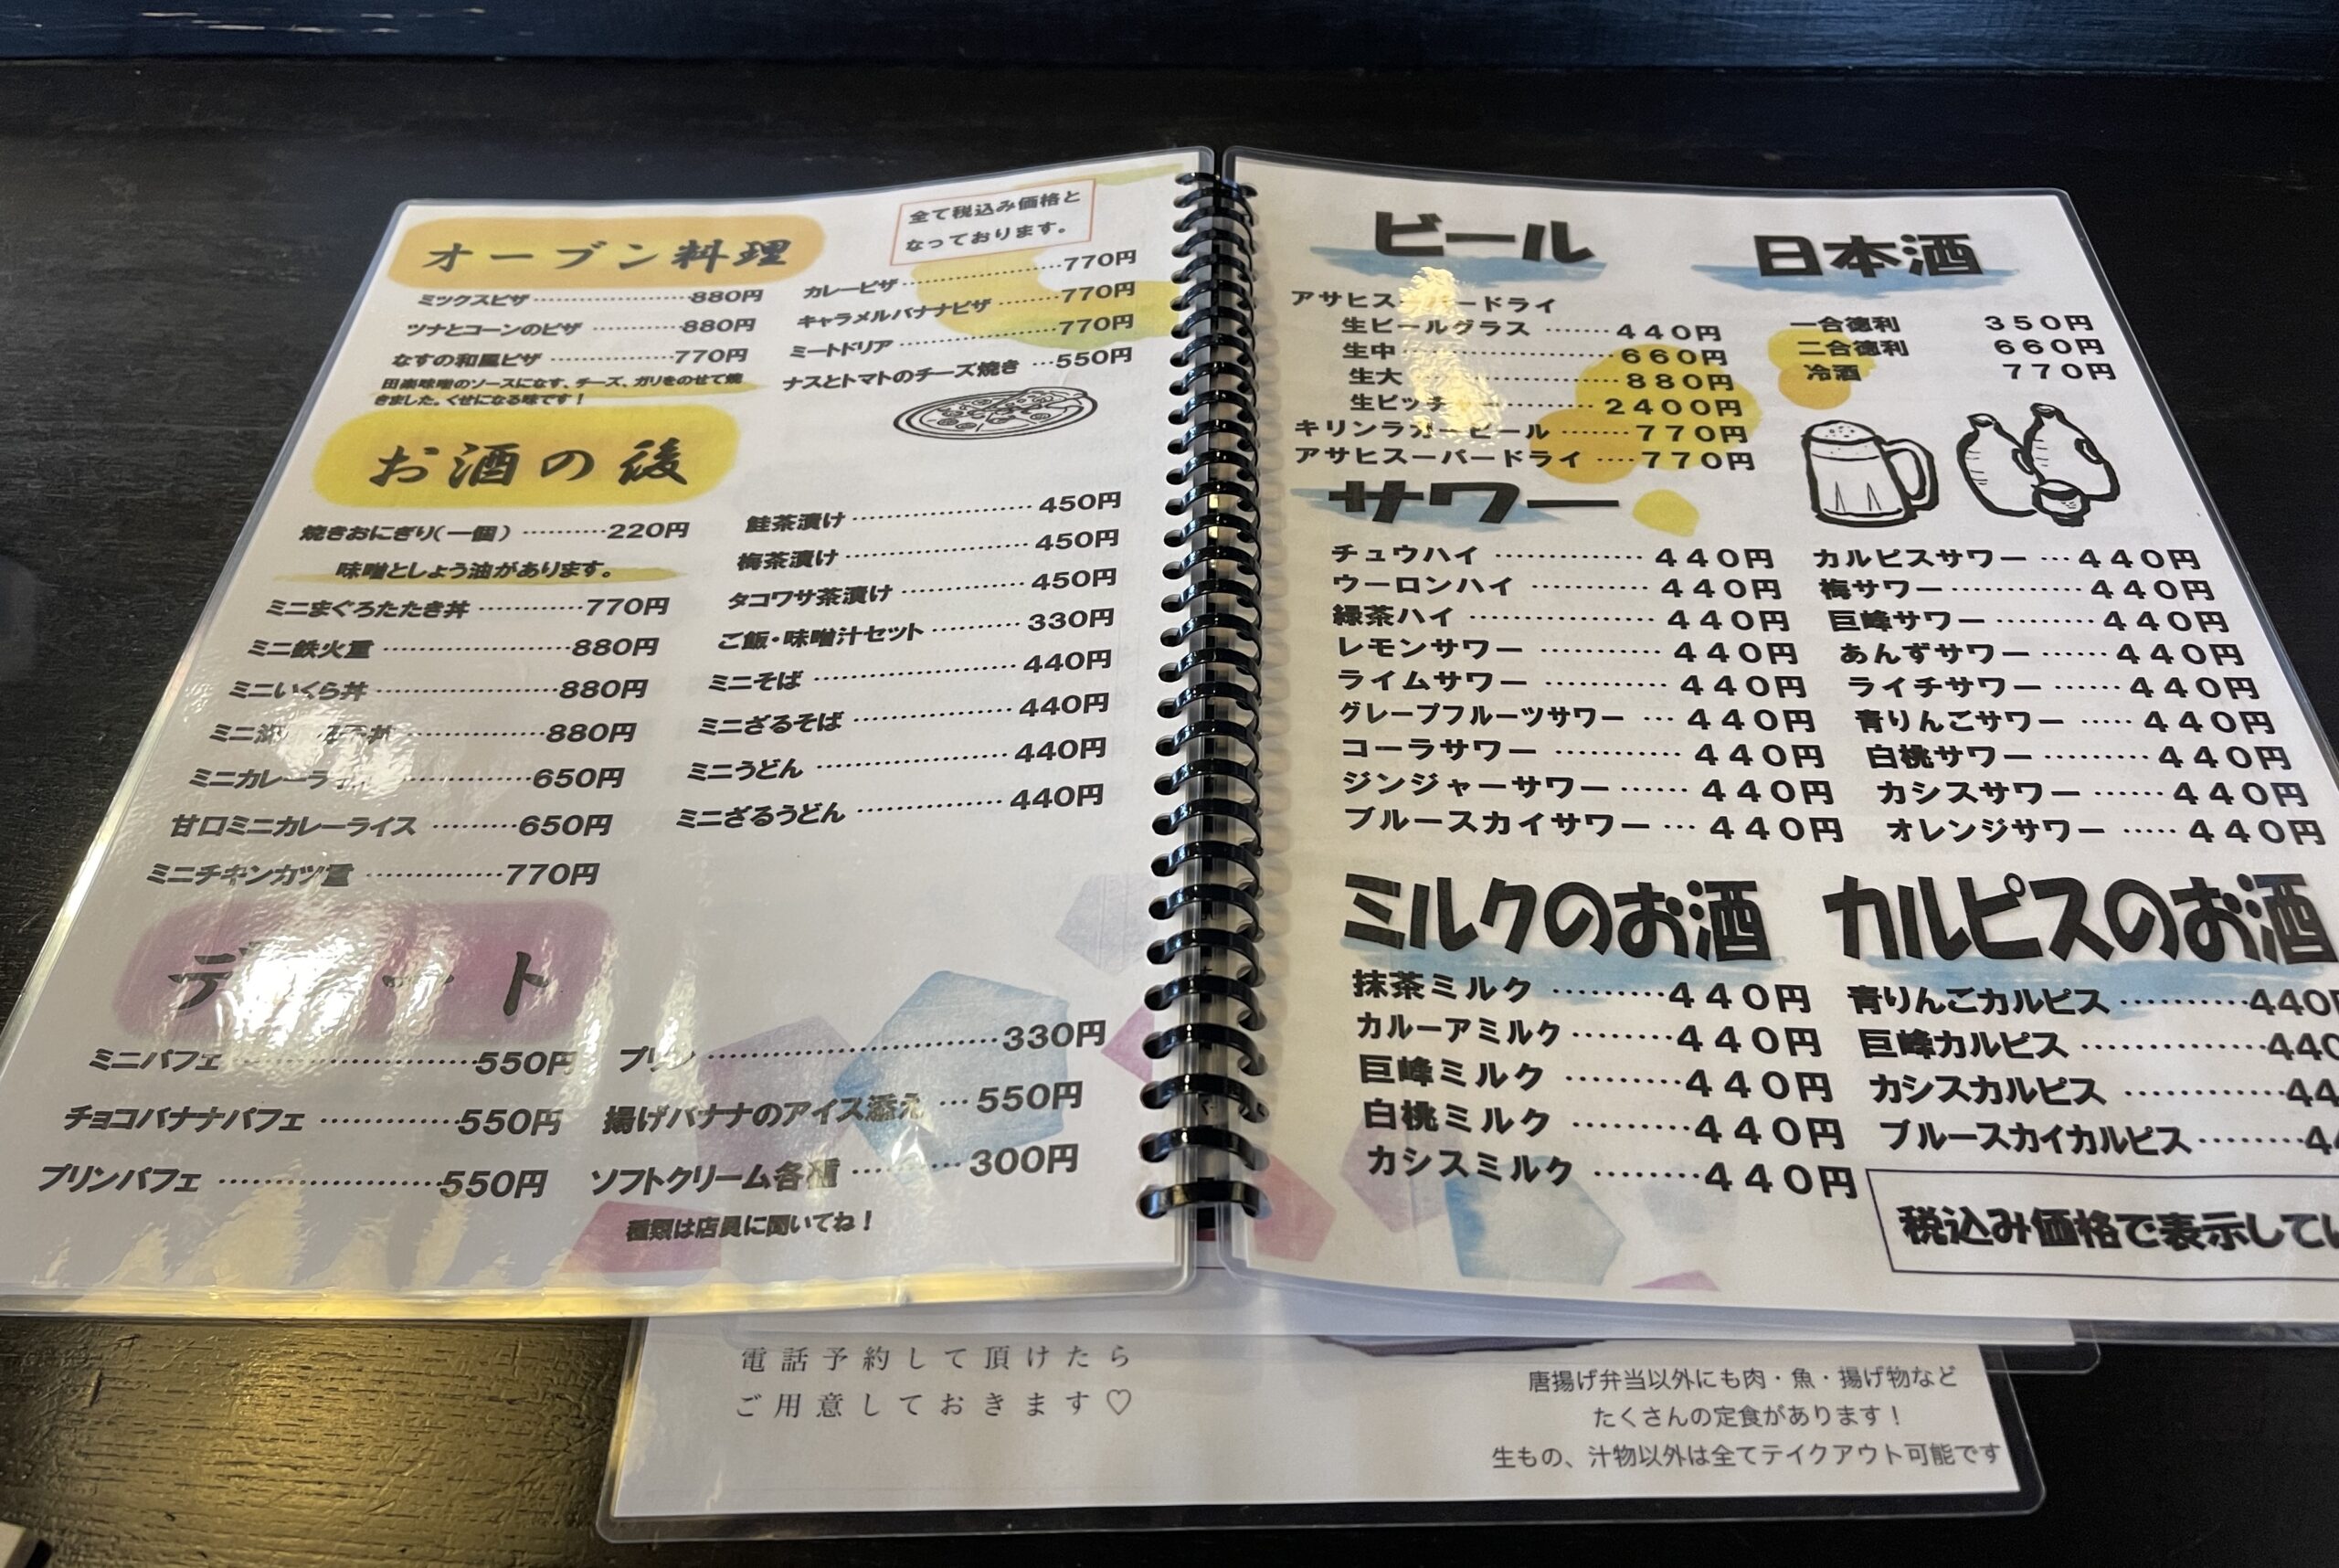 オーブン料理
全て税込み価格と
なっております。
ミックスピザ……………………880円
ツナとコーンのピザ…………880円
なすの和風ピザ………………770円
田楽味噌のソースになす、チーズ、ガリをのせて焼
きました。くせになる味です！
カレーピザ……………………770円
キャラメルバナナピザ………770円
ミートドリア…………………770円
ナスとトマトのチーズ焼き…550円
お酒の後
焼きおにぎり(一個)………220円
味噌としょう油があります。
ミニまぐろたたき丼…………770円
ミニ鉄火重……………………880円
ミニいくら丼…………………880円
ミニ 丼………………880円
ミニカレーラ ………………650円
甘口ミニカレーライス………650円
ミニチキンカツ重……………770円
鮭茶漬け………………………450円
梅茶漬け………………………450円
タコワサ茶漬け………………450円
ご飯・味噌汁セット…………330円
ミニそば………………………440円
ミニざるそば…………………440円
ミニうどん……………………440円
ミニざるうどん………………440円
デ ート
ミニパフェ……………………550円
チョコバナナパフェ…………550円
プリンパフェ…………………550円
プリン…………………………330円
揚げバナナのアイス添え…550円
ソフトクリーム各種…………300円
種類は店員に聞いてね！
ビール
アサヒスーパードライ
生ビールグラス……440円
生中……………………660円
生大……………………880円
生ピッチャー…………2400円
キリンラガービール……770円
アサヒスーパードライ…770円
日本酒
一合徳利 350円
二合徳利 660円
冷酒 770円
サワー
チュウハイ……………440円
ウーロンハイ…………440円
緑茶ハイ………………440円
レモンサワー…………440円
ライムサワー…………440円
グレープフルーツサワー…440円
コーラサワー…………440円
ジンジャーサワー……440円
ブルースカイサワー…440円
カルピスサワー…440円
梅サワー…………440円
巨峰サワー………440円
あんずサワー……440円
ライチサワー……440円
青りんごサワー…440円
白桃サワー………440円
カシスサワー……440円
オレンジサワー…440円
ミルクのお酒
抹茶ミルク………440円
カルーアミルク…440円
巨峰ミルク………440円
白桃ミルク………440円
カシスミルク……440円
カルピスのお酒
青りんごカルピス…………440円
巨峰カルピス………………440
カシスカルピス……………44
ブルースカイカルピス……44
税込み価格で表示してい
電話予約して頂けたら
ご用意しておきます♡
唐揚げ弁当以外にも肉・魚・揚げ物など
たくさんの定食があります！
生もの、汁物以外は全てテイクアウト可能です